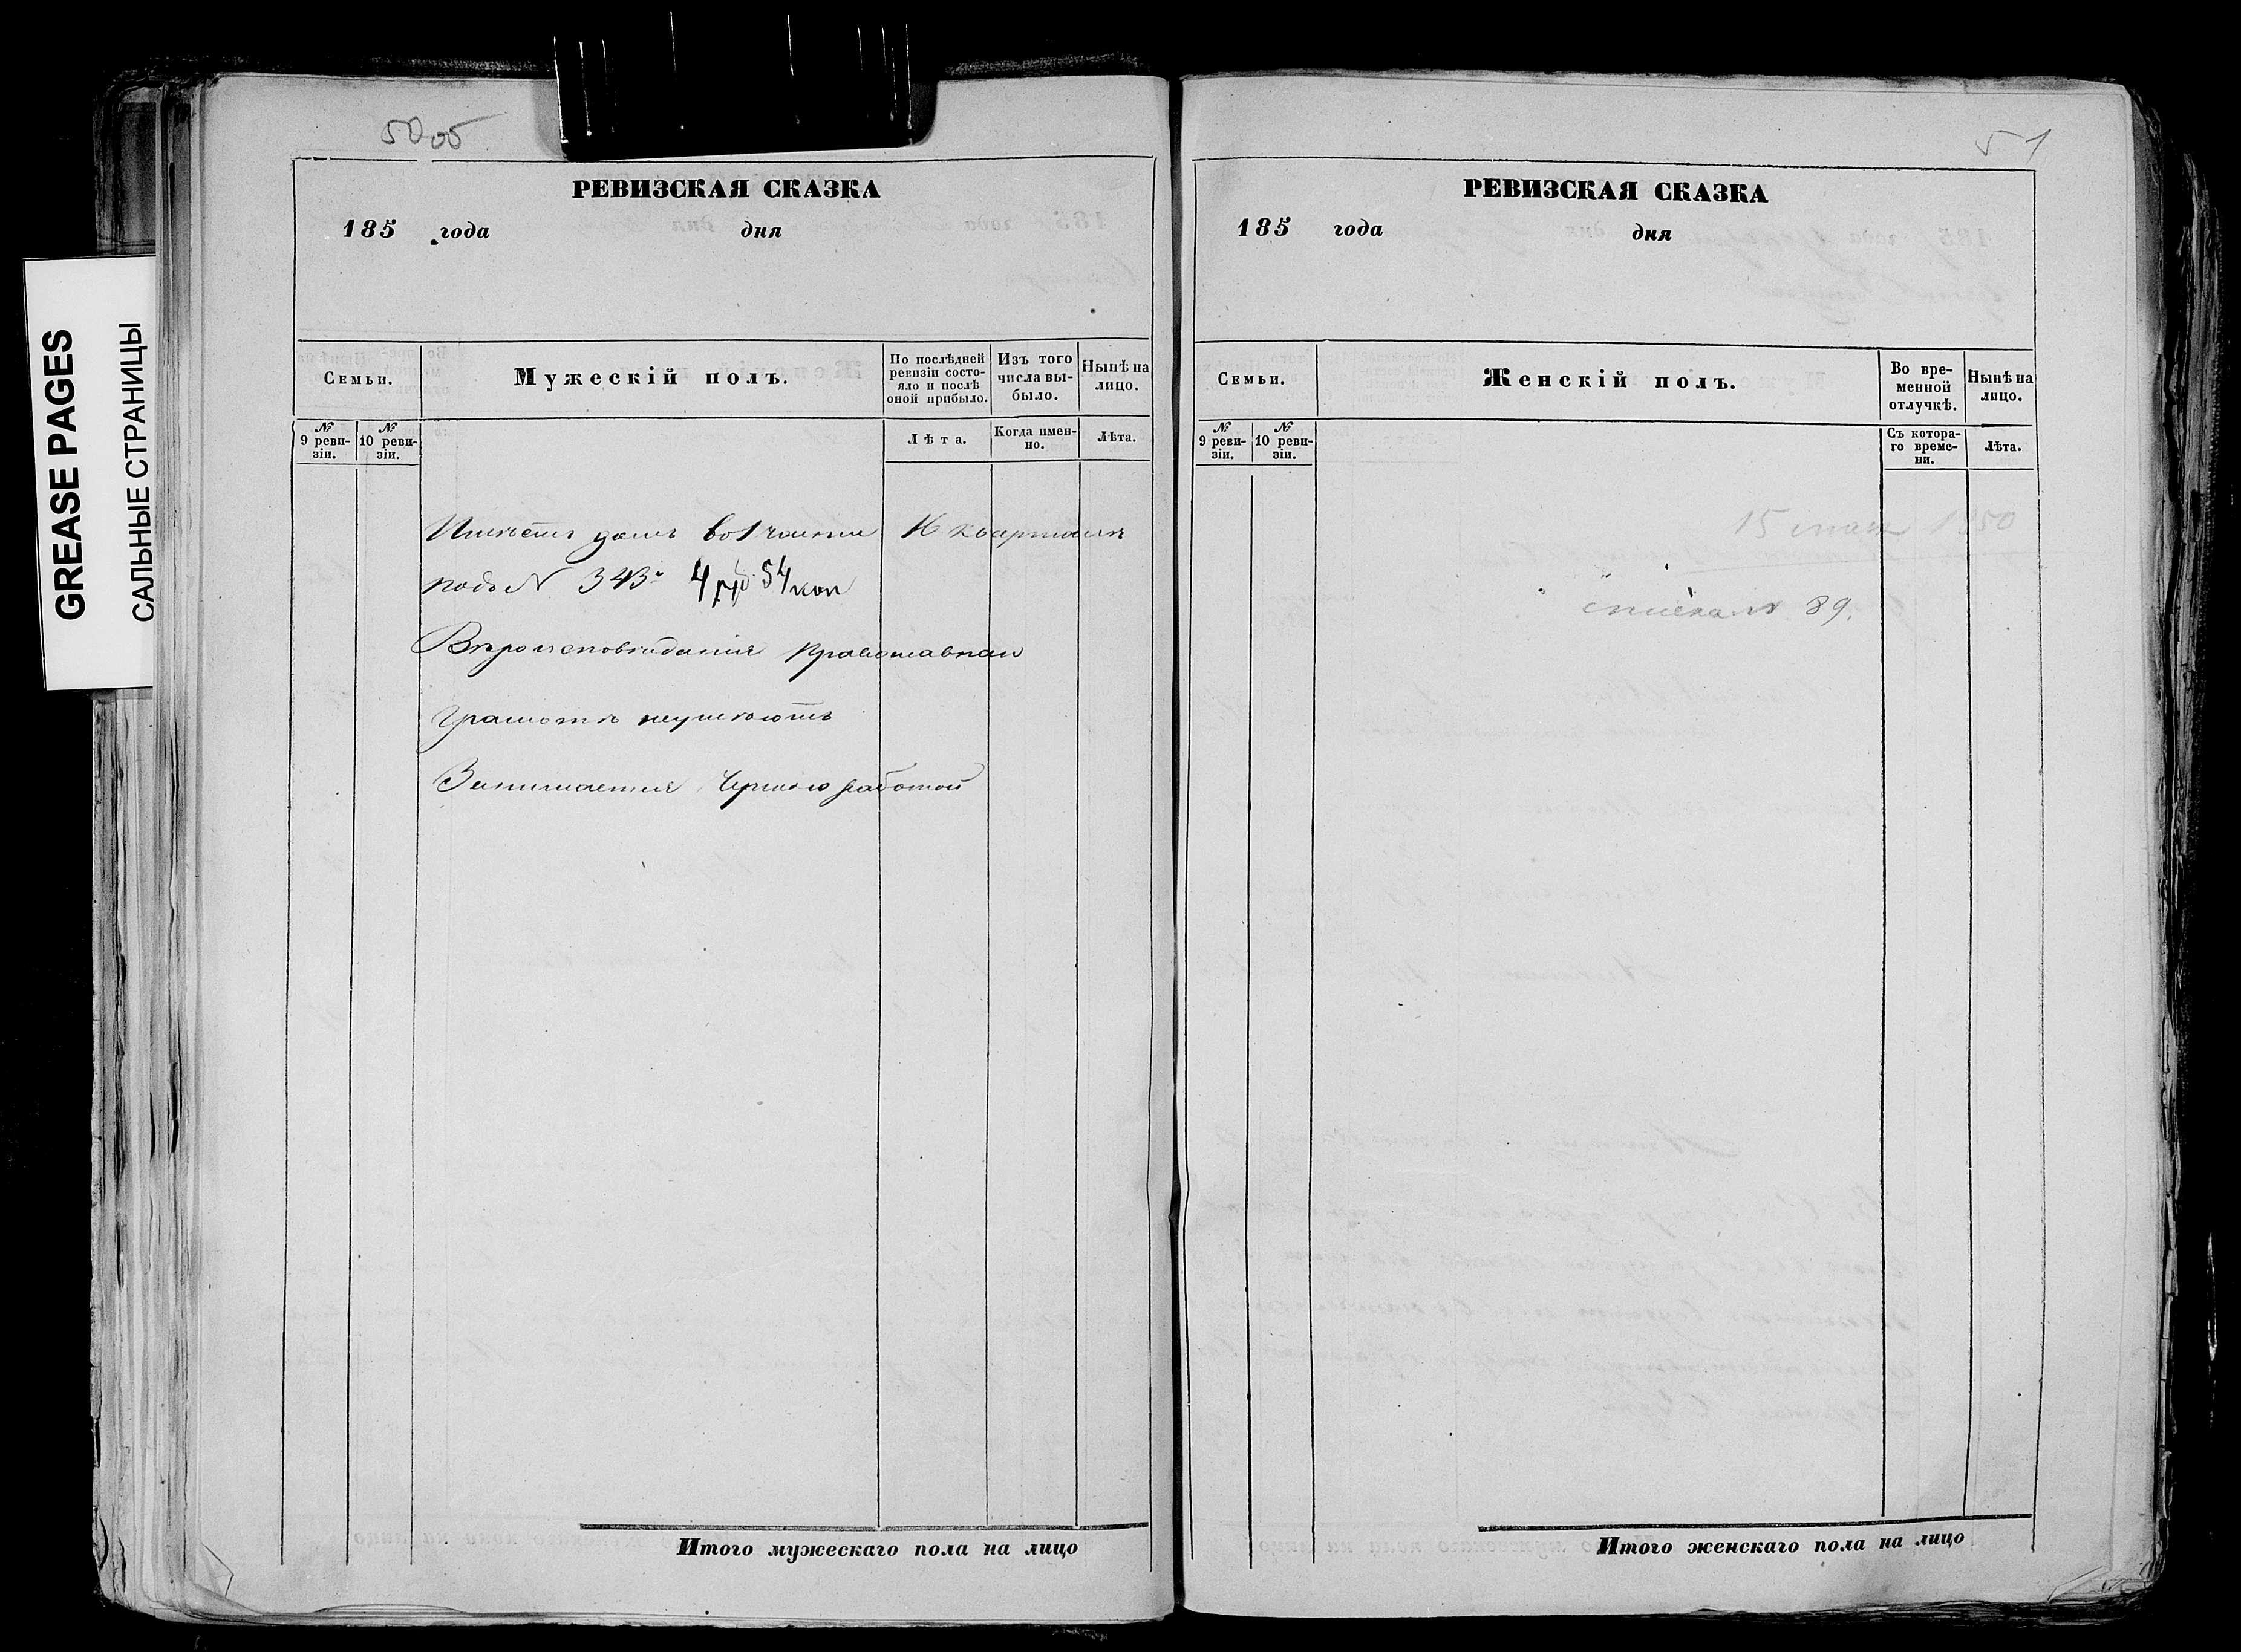 GREASE PAGES
САЛЬНЫЕ СТРАНИЦЫ
50 об
РЕВИЗСКАЯ СКАЗКА
185 года дня
Семьи.
Мужескій полъ.
По послѣдней ревизіи состояло и послѣ оной прибыло.
Изъ того числа выбыло.
Нынѣ на лицо.
№ 9 ревизіи.
№ 10 ревизіи.
Лѣта.
Когда именно.
Лѣта.
Имѣетъ домъ во 1 части 16 кварталѣ
подъ N 343. 4 руб 54 коп
Вѣроисповѣданія православнаи
Грамотѣ неумѣютъ
Занимается Черною работой
Итого мужескаго пола на лицо
51
РЕВИЗСКАЯ СКАЗКА
185 года дня
Семьи.
Женскій полъ.
Во временной отлучкѣ.
Нынѣ на лицо.
№ 9 ревизіи.
№ 10 ревизіи.
Съ котораго времени.
Лѣта.
15 мая 1850
89.
Итого женскаго пола на лицо